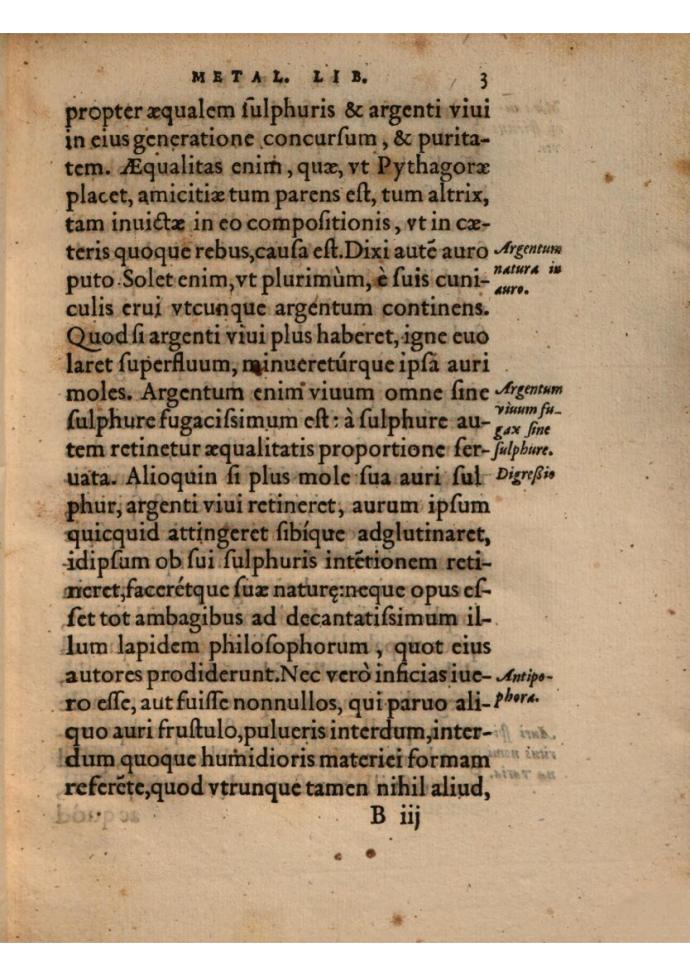 METAL. LIB. 3
propter æqualem ſulphuris & argenti viui
in eius generatione concurſum, & purita-
tem. Æqualitas enim, quæ, vt Pythagoræ
placet, amicitiæ tum parens eſt, tum altrix,
tam inuictæ in eo compoſitionis, vt in cæ-
teris quoque rebus, cauſa eſt. Dixi autē auro
puto. Solet enim, vt plurimùm, è ſuis cuni-
culis erui vtcunque argentum continens.
Quod ſi argenti viui plus haberet, igne euo
laret ſuperfluum, minueretúrque ipſa auri
moles. Argentum enim viuum omne ſine
ſulphure fugaciſsimum eſt: à ſulphure au-
tem retinetur æqualitatis proportione ſer-
uata. Alioquin ſi plus mole ſua auri ſul
phur, argenti viui retineret, aurum ipſum
quicquid attingeret ſibíque adglutinaret,
idipſum ob ſui ſulphuris intētionem reti-
neret, facerétque ſuæ naturę: neque opus eſ-
ſet tot ambagibus ad decantatiſsimum il-
lum lapidem philoſophorum, quot eius
autores prodiderunt. Nec verò inficias iue-
ro eſſe, aut fuiſſe nonnullos, qui paruo ali-
quo auri fruſtulo, pulueris interdum, inter-
dum quoque humidioris materiei formam
referēte, quod vtrunque tamen nihil aliud,
B iij
Argentum
natura in
auro.
Argentum
viuum fu-
gax ſine
ſulphure.
Digreßio
Antipo-
phora.